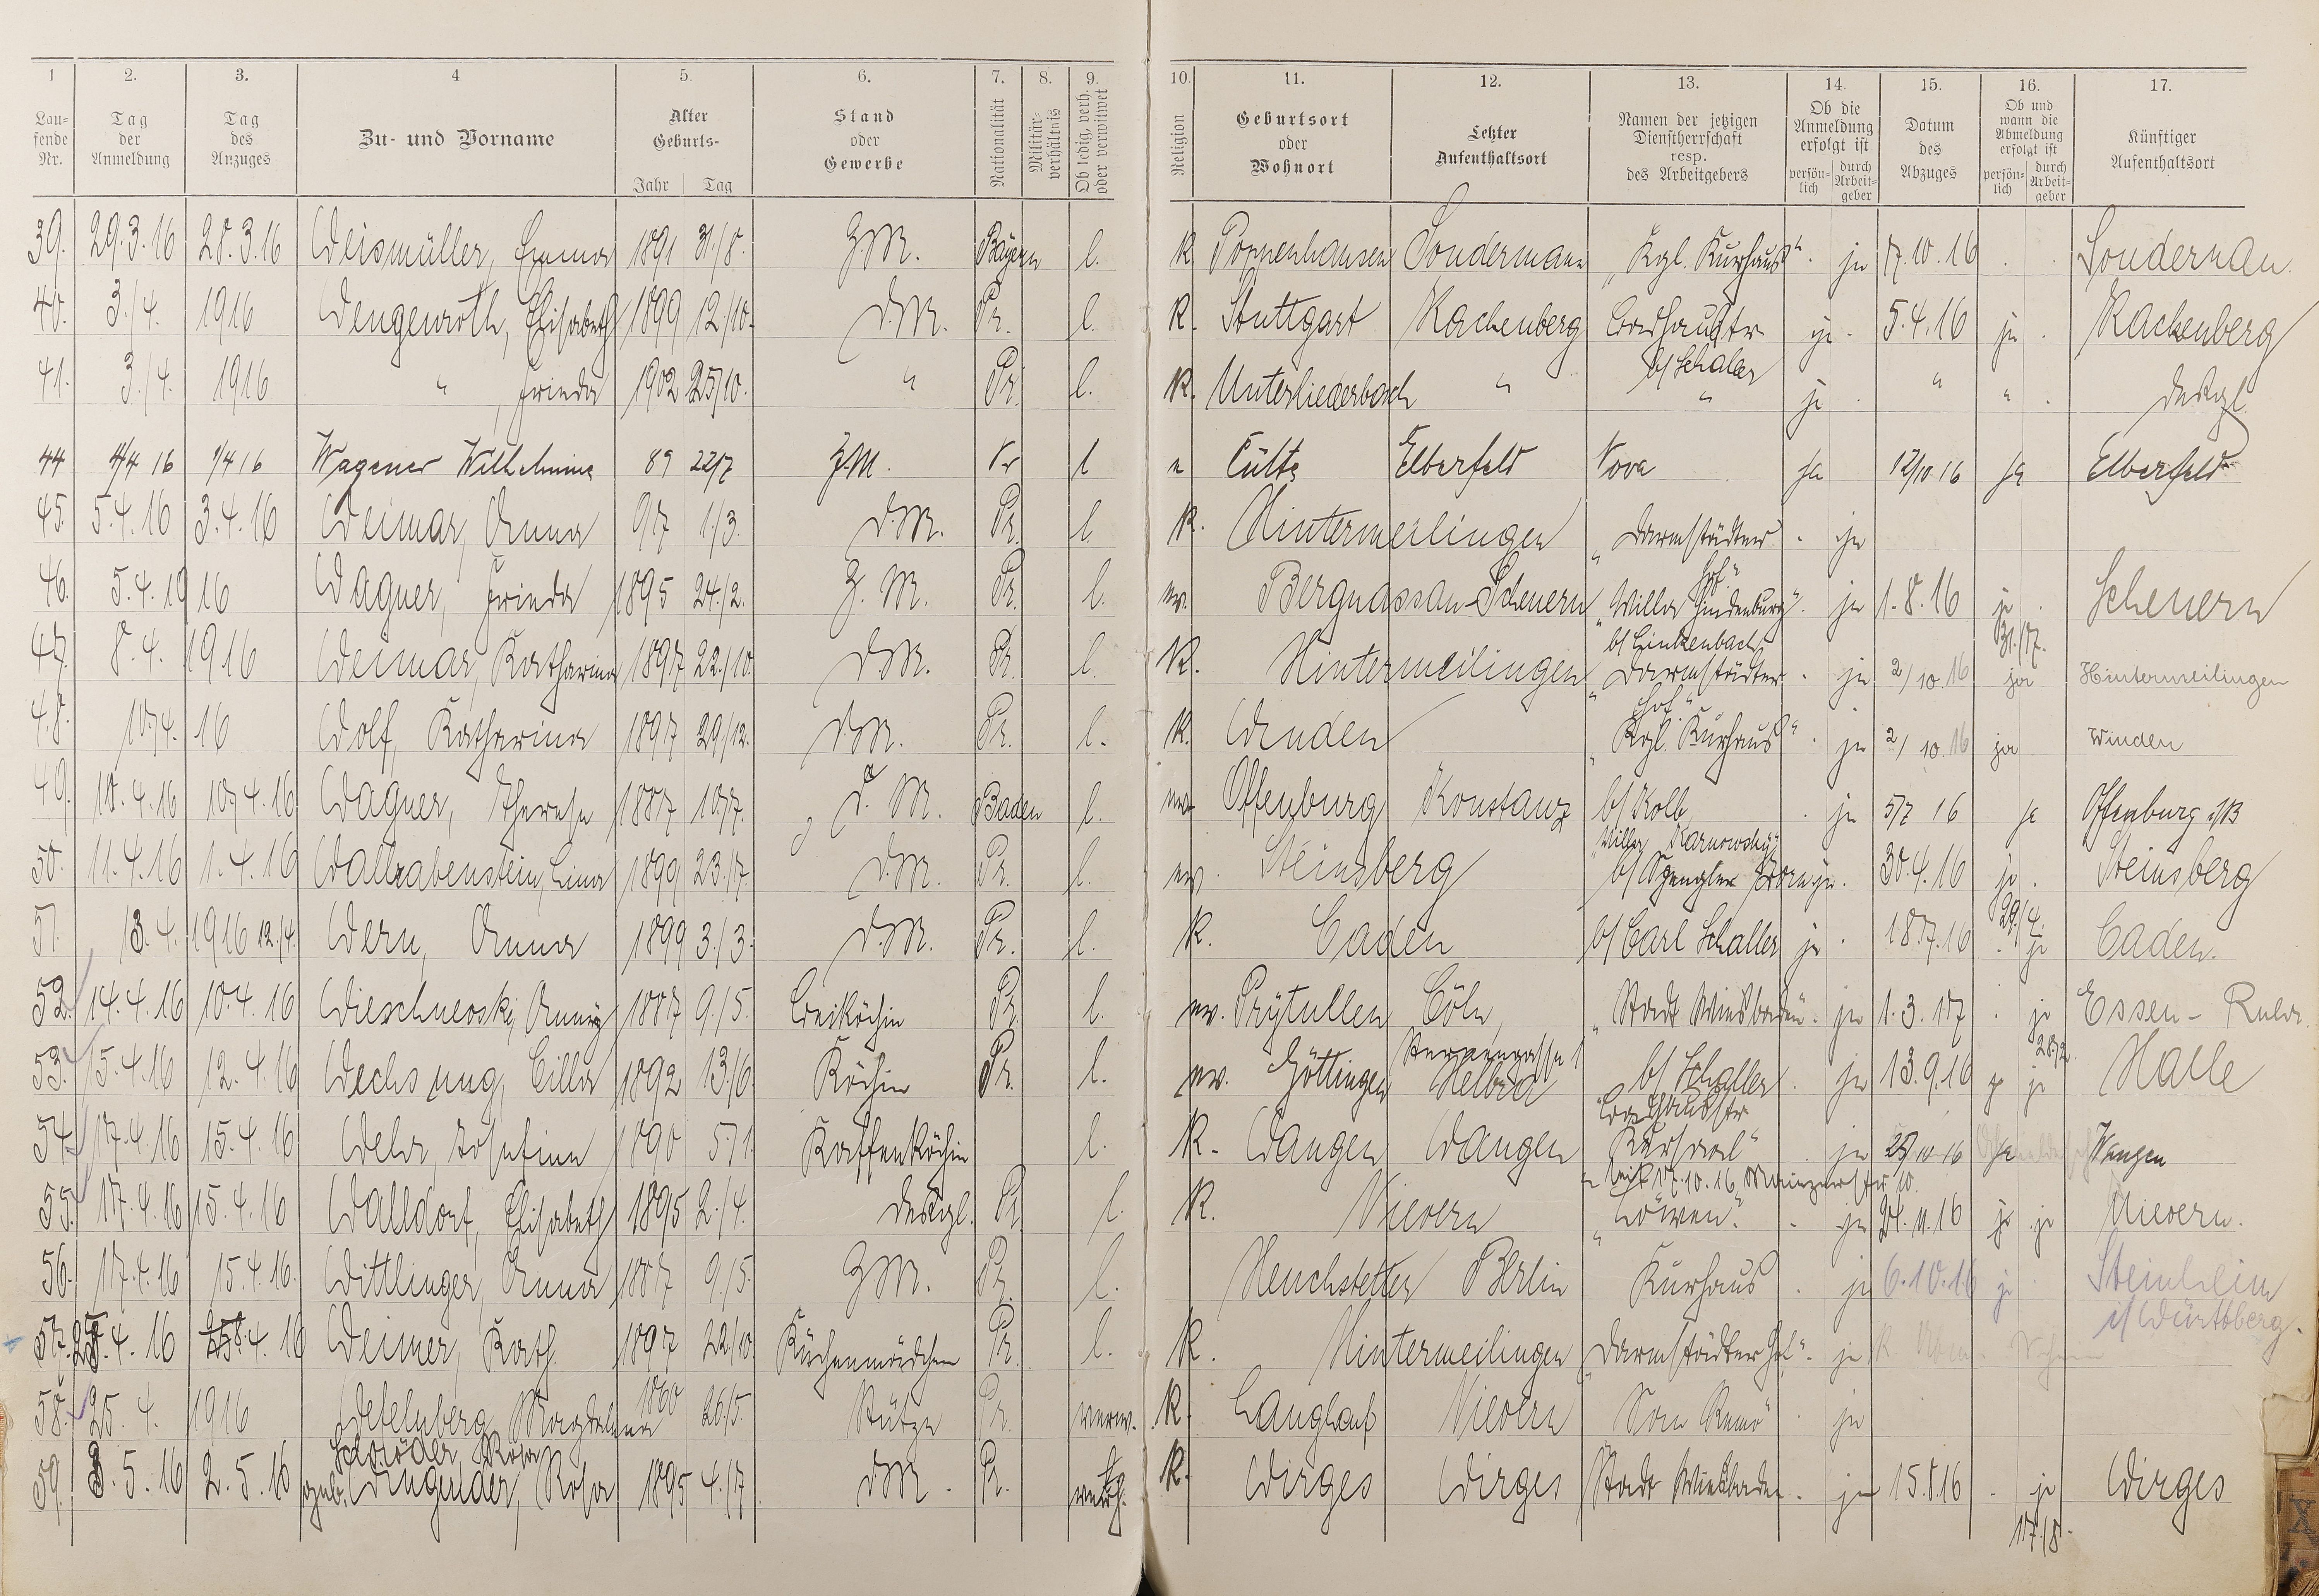 1 2. 3. 4 5. 6. 7. 8. 9. 10. 11. 12. 13. 14. 15. 16. 17.
Laufende Nr. Tag der Anmeldung Tag des Anzuges Zu- und Vorname Alter Geburts- Jahr Tag Stand oder Gewerbe Nationalität Militärverhältnis Ob ledig, verh. oder verwitwet Religion Geburtsort oder Wohnort Letzter Aufenthaltsort Namen der jetzigen Dienstherrschaft resp. des Arbeitgebers Ob die Anmeldung erfolgt ist persönlich durch Arbeitgeber Datum des Abzuges Ob und wann die Abmeldung erfolgt ist persönlich durch Arbeitgeber Künftiger Aufenthaltsort
39. 29.3.16 28.3.16 Weismüller, Emma 1891 31./8. Z.M. Bayern l. K Poppenhausen Sondermann „Kgl. Kurhaus“. ja 7.10.16 Sondernau
40. 3./4. 1916 Wengenroth, Elisabeth 1899 12./10. D.M. Pr. l. K. Stuttgart Rachenberg ja. 5.4.16 ja. Rackenberg
b/ Schaller
41. 3./4. 1916 " , Frieda 1902 25/10. " Pr. l. K. Unterliederbach " " ja " " Desgl.
44 4/4 16 1/4 16 Wagener Wilhelmine 89 22/7 Z.M. Pr l Elberfeld Nova ja 12/10 16 ja Elberfeld
45. 5.4.16 3.4.16 Weimar, Anna 97 1./3. D.M. Pr. l. K. Hintermeilingen „Darmstädter ja
Hof.“
46. 5.4.19 16 Wagner, Frieda 1895 24./2. Z.M. Pr. l. ev. Bergnassau-Scheuern „Villa Hindenburg“. ja 1.8.16 ja Scheuern
b/ Linkenbach 31./7.
47. 8.4. 1916 Weimar, Katharina 1897 22./10. D.M. Pr. l. K. Hintermeilingen „Darmstädter ja 2/10.16 ja Hintermeilingen
Hof“
48. 10/4. 16 Wolf, Katharina 1897 29/12. D.M. Pr. l. K. Winden „Kgl. Kurhaus“. ja 2/10.16 ja Winden
49. 10.4.16 10/4.16 Wagner, Therese 1887 10/7. D.M. Baden l. ev. Offenburg Konstanz b/ Kolb ja 5/7 16 ja Offenburg i/B
Villa Karnowsky
50. 11.4.16 1.4.16 Wallrabenstein, Lina 1899 23./7. D.M. Pr. l. ev. Steinsberg b/ Spengler ja. 30.4.16 ja. Steinsberg
29./4.
51. 13.4. 1916 12./4. Wern, Anna 1899 3./3. D.M. Pr. l. K. Caden b/ Carl Schaller ja. 18.7.16 ja Caden.
52. 14.4.16 10.4.16 Wieschnewski, Anny 1887 9./5. Beiköchin Pr. l. ev. Prÿtullen Cöln, „Stadt Wiesbaden“. ja 1.3.17 ja Essen-Ruhr.
Sternengasse 1 28./2.
53. 15.4.16 12.4.16 Wechsung, Cilla 1892 13./6. Köchin Pr. l. ev. Göttingen Helbra b/ Schaller ja 13.9.16 ja Halle
54. 17.4.16 15.4.16 Welz, Josefine 1890 5./1. Kaffeeköchin l. K. Wangen Wangen Kursaal“ ja 29/10 16 ja Wangen
seit 17.10.16 Mainzerstr. 10.
55. 17.4.16 15.4.16 Walldorf, Elisabeth 1895 2./4. Desgl. Pr. l. K. Nievern „Löwen“. ja 24.11.16 ja ja Nievern.
56. 17.4.16 15.4.16. Wittlinger, Anna 1887 9./5. Z.M. Pr. l. Heuchstetten Berlin Kurhaus ja 6.10.16 ja Steinheim
i/ Württbberg.
57. 25.4.16 25.4.16 Weimer, Kath. 1897 22/10. Küchenmädchen Pr. l. K. Hintermeilingen „Darmstädter Hof“. ja
58. 25.4. 1916 Magdalena 1860 26.5. Stütze Pr. verw. K. Nievern San Remo“ ja
Schröder, Rosa
59. 3.5.16 2.5.16 geb. Wingender, Rosa 1895 4./7. D.M. Pr. verh. K. Wirges Wirges Stadt Wiesbaden. ja 15.8.16 ja Wirges
17./8.